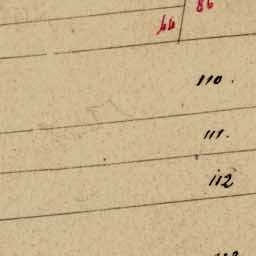 86
44
110.
111.
112